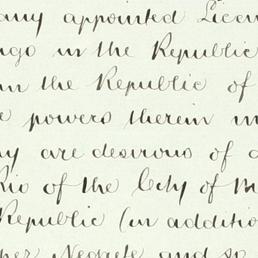 any appointed Licen
ngo in the Republic
in the Republic of
e powers therein m
ny are desirous of
Rio of the City of M
Republic (in additio
per Negrete and so